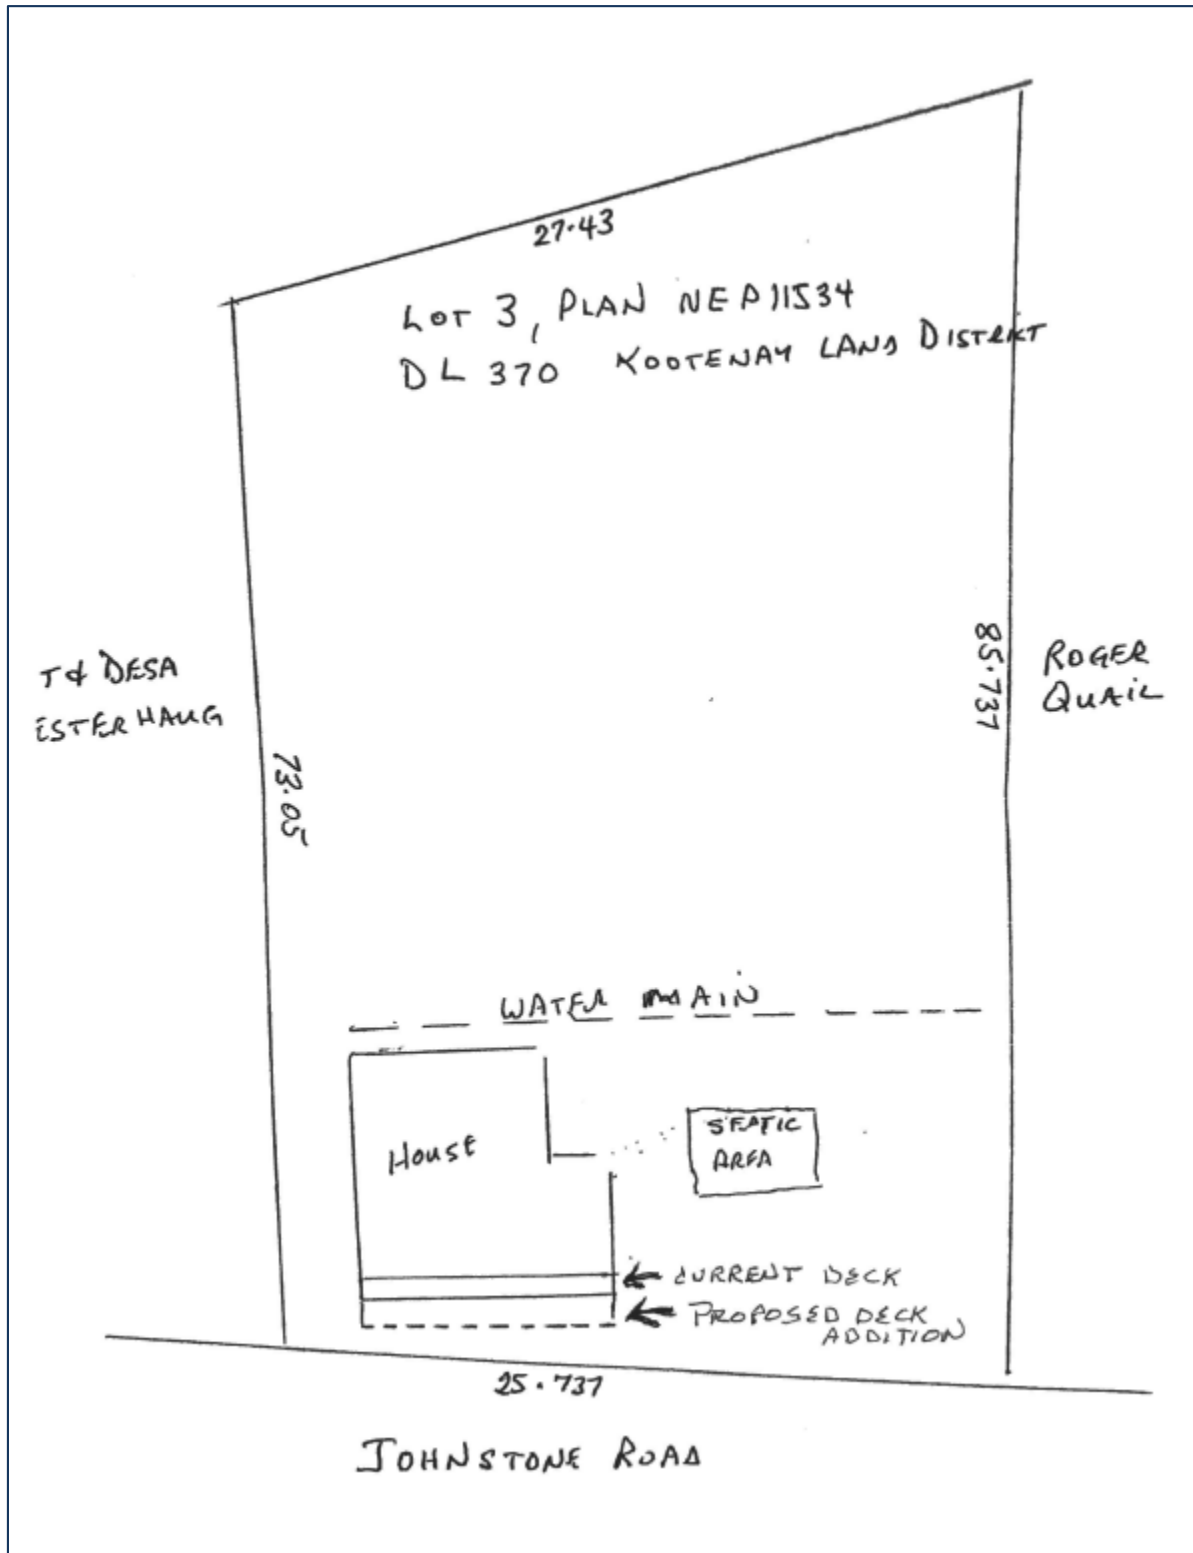 27.43
LOT 3, PLAN NEP11534
DL 370 KOOTENAY LAND DISTRICT
T & DESA
ESTERHAUG
73.05
85.737
ROGER
QUAIL
WATER MAIN
HOUSE
SEPTIC
AREA
CURRENT DECK
PROPOSED DECK
ADDITION
25.737
JOHNSTONE ROAD